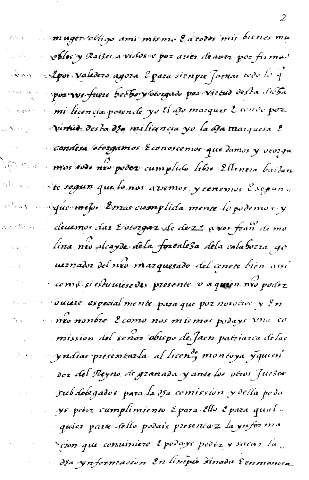 2
muger obligo ami mismo E a todos mis bienes mu
ebles y Raizes avidos e por aver de aver por firme
E por valedero agora E para siempre jamas todo lo q
por vos fuere hecho y otorgado por virtud desta dicha
mi licencia potende yo El dho marques E conde por
virtud desta dha mi licencia yo la dha marquesa E
condesa otorgamos E conoscemos que damos y otorga
mos todo nro poder cumplido libre E llenero bastan
te segun que lo nos avemos y tenemos E segun
que mejor E mas cumplida mente lo podemos y
devemos dar E otorgar de dro a vos franco de mo
lina nro alcayde de la fortaleza de la calahorra go
vernador del nro marquesado del cenete bien ansi
como si estuviesedes presente a quien nro poder
ouiere especial mente para que por nosotros y En
nro nonbre E como nos mismos podays una co
mission del señor obispo de Jaen patriarca de las
yndias presentarla al licendo montoya
dor del Reyno de granada y ante los otros Juezes
subdelegados para la dha comission y della poda
ys pedir cumplimiento E para ello E para qual
quier parte dello podais presentar la ynforma
cion que conviniere E podays pedir y sacar la
dha ynformacion En linpio signada E en manera